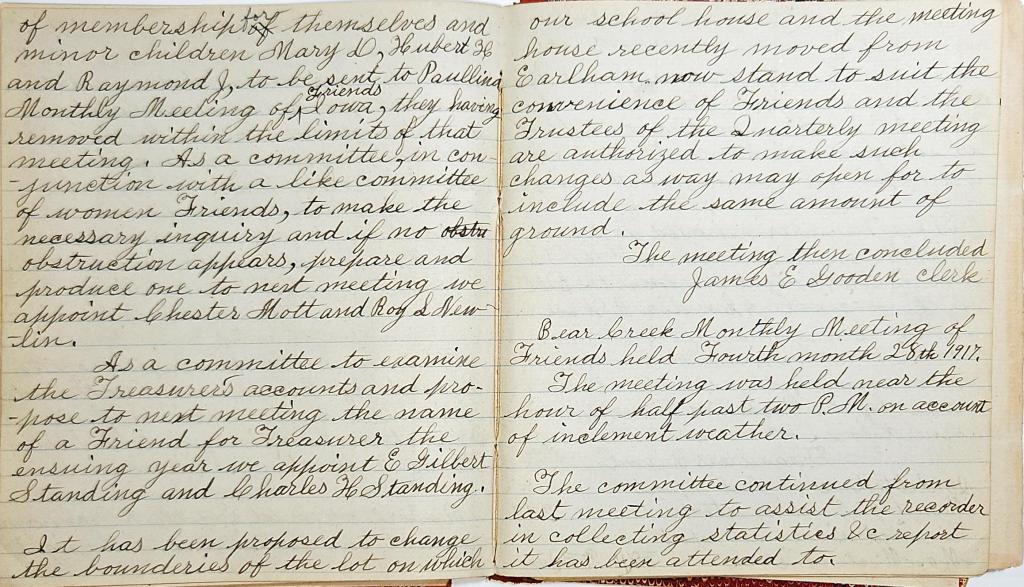 of membership for themselves and
minor children Mary D, Hubert H
and Raymond J, to be sent to Paullina
Monthly Meeting of Friends Iowa, they having
removed within the limits of that
meeting. As a committee, in con-
-junction with a like committee
of women Friends, to make the
necessary inquiry and if no obstru
obstruction appears, prepare and
produce one to next meeting we
appoint Chester Mott and Roy L New-
-lin.
As a committee to examine
the Treasurer's accounts and pro-
-pose to next meeting the name
of a Friend for Treasurer the
ensuing year we appoint E Gilbert
Standing and Charles H Standing.
It has been proposed to change
the bounderies of the lot on which
our school house and the meeting
house recently moved from
Earlham now stand to suit the
convenience of Friends and the
Trustees of the Quarterly meeting
are authorized to make such
changes as way may open for to
include the same amount of
ground.
The meeting then concluded
James E Gooden Clerk
Bear Creek Monthly Meeting of
Friends held Fourth month 28th 1917.
The meeting was held near the
hour of half past two P.M. on account
of inclement weather.
The committee continued from
last meeting to assist the recorder
in collecting statistics &c report
it has been attended to.